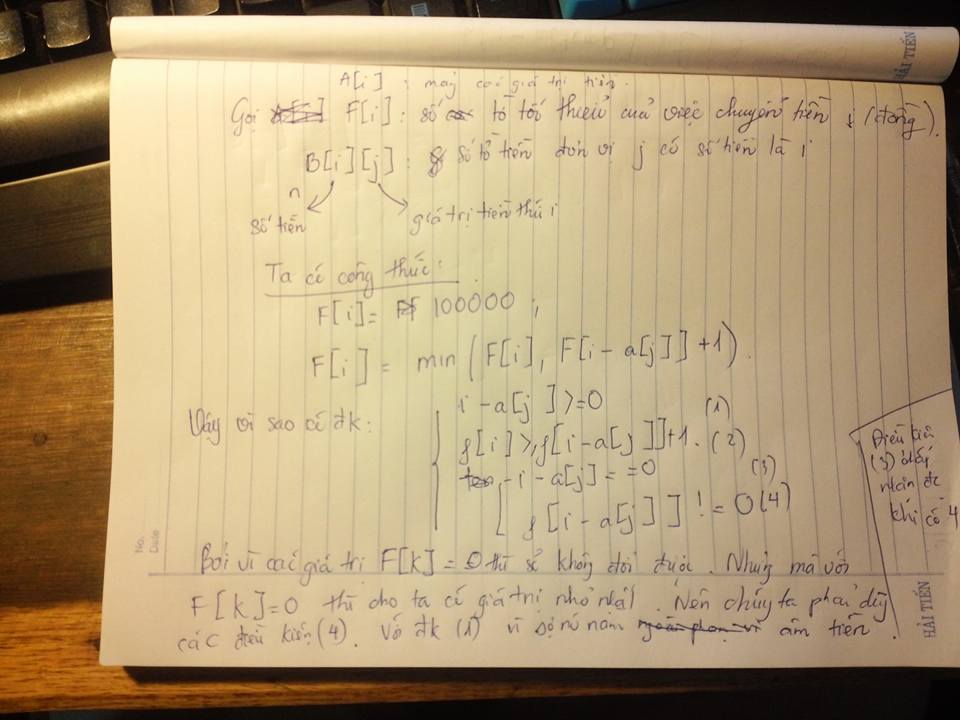 A[i] : mấy coi giá trị tiền.
Gọi F[i]: số tờ tối thiểu của việc chuyển tiền i (đồng).
B[i][j] : số tờ tiền đơn vị j có số tiền là i
n
số tiền giá trị tiền thứ i
Ta có công thức:
F[i]= 100000 ;
F[i] = min (F[i], F[i-a[j]]+1).
Vậy vì sao có đk:
i-a[j]>=0 (1)
f[i]>,f[i-a[j]]+1. (2)
-i-a[j]==0 (3)
f[i-a[j]]!=0(4)
Điều kiện
(3)
nhận đc
khi có 4
Bởi vì các giá trị F[k]=0 thì sẽ không đổi được. Nhưng mà với
F[k]=0 thì cho ta có giá trị nhỏ nhất. Nên chúng ta phải dùng
các điều kiện (4). Với đk (1) vì sợ nó nằm âm tiền.
No.
Date
HẢI TIẾN
HẢI TIẾN